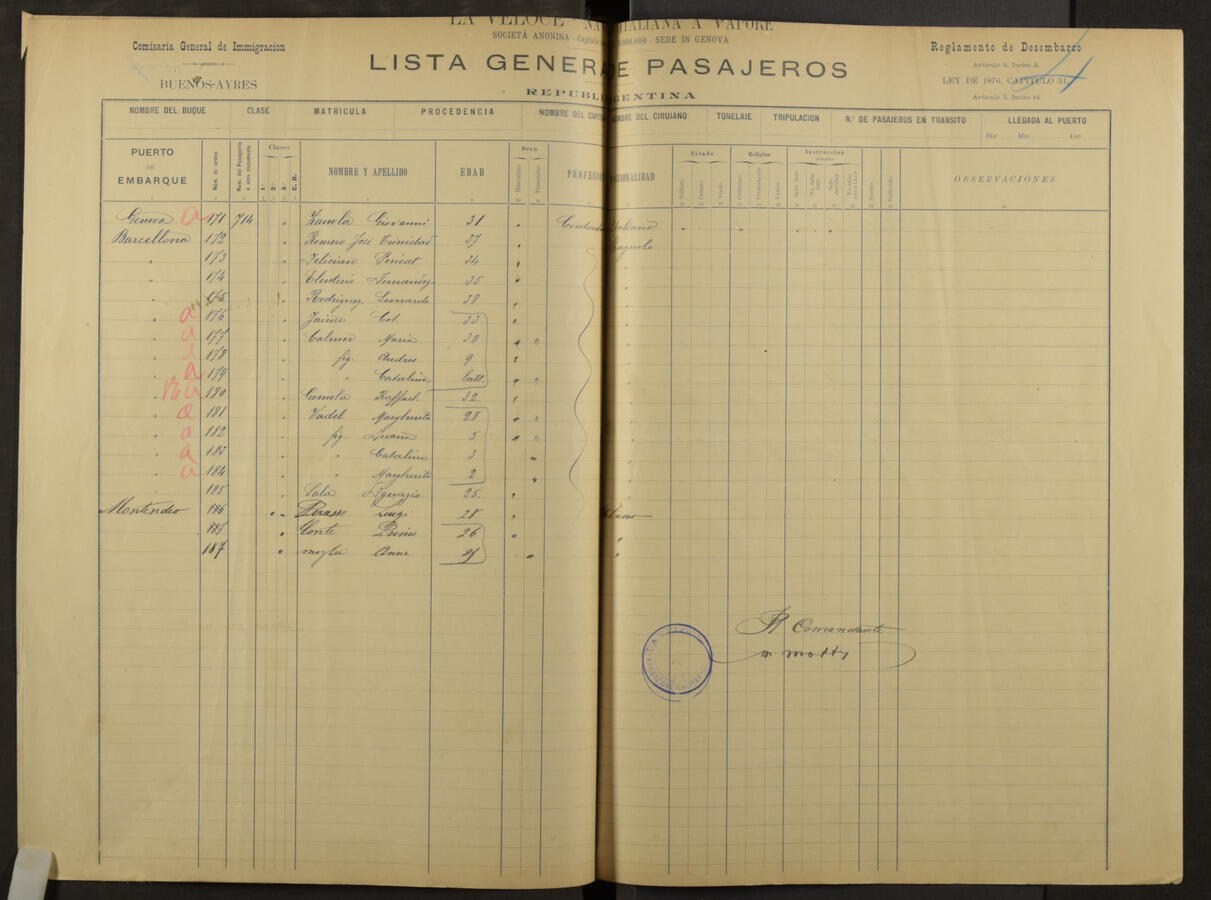 LA VELOCE - NA ITALIANA A VAPORE
SOCIETÀ ANONINA - Capitale 000.000 - SEDE IN GENOVA
Comisaria General de Immigracion
BUENOS-AYRES
LISTA GENERA DE PASAJEROS
REPUBLI GENTINA
Reglamento de Desembarco
Articulo 5, Inciso 3.
LEY DE 1876, CAPITULO 51
Articulo 3, Inciso 14
NOMBRE DEL BUQUE CLASE MATRICULA PROCEDENCIA NOMBRE DEL CAPIT NOMBRE DEL CIRUJANO TONELAJE TRIPULACION N.º DE PASAJEROS EN TRANSITO LLEGADA AL PUERTO
Dia Mes Ano
PUERTO DE EMBARQUE Núm. de orden Núm. del Pasaporte u otro documento Clases 1.ª 2.ª 3.ª C. D. NOMBRE Y APELLIDO EDAD Sexo Masculino Femenino PROFESIO NACIONALIDAD Estado Soltero Casado Viudo Religion Catolico Protestante Varios Instruccion Sabe leer No sabe leer Sabe escribir No sabe escribir Nacido Fallecido OBSERVACIONES
Genova a 171 714 " Zanola Giovanni 31 " Contad Italiano " " " "
Barcellona 172 " Romero José Trinidad 37 " Spagnolo
" 173 " Felician Pericat 34 " "
" 174 " Elenterio Fernandez 35 " "
" 175 " Rodriguez Leonardo 38 " "
" a 176 " Jaime Col 33 " "
" a 177 " Calmer Maria 30 " " "
" a 178 " fig. Andres 9 " "
" a 179 " " Catalina latt. " " "
" 180 " Comola Raffael 32 " "
" a 181 " Vadel Margherita 28 " " "
" a 182 " fig. Juana 5 " " "
" a 183 " " Catalina 3 " "
" a 184 " " Margherita 2 " "
185 " Sala Ignazio 25 " "
Montevideo 186 " Perasso Luigi 28 "
" 187 " Conte Primo 26 " "
187 " moglie Anna 21 " "
Il Comandante